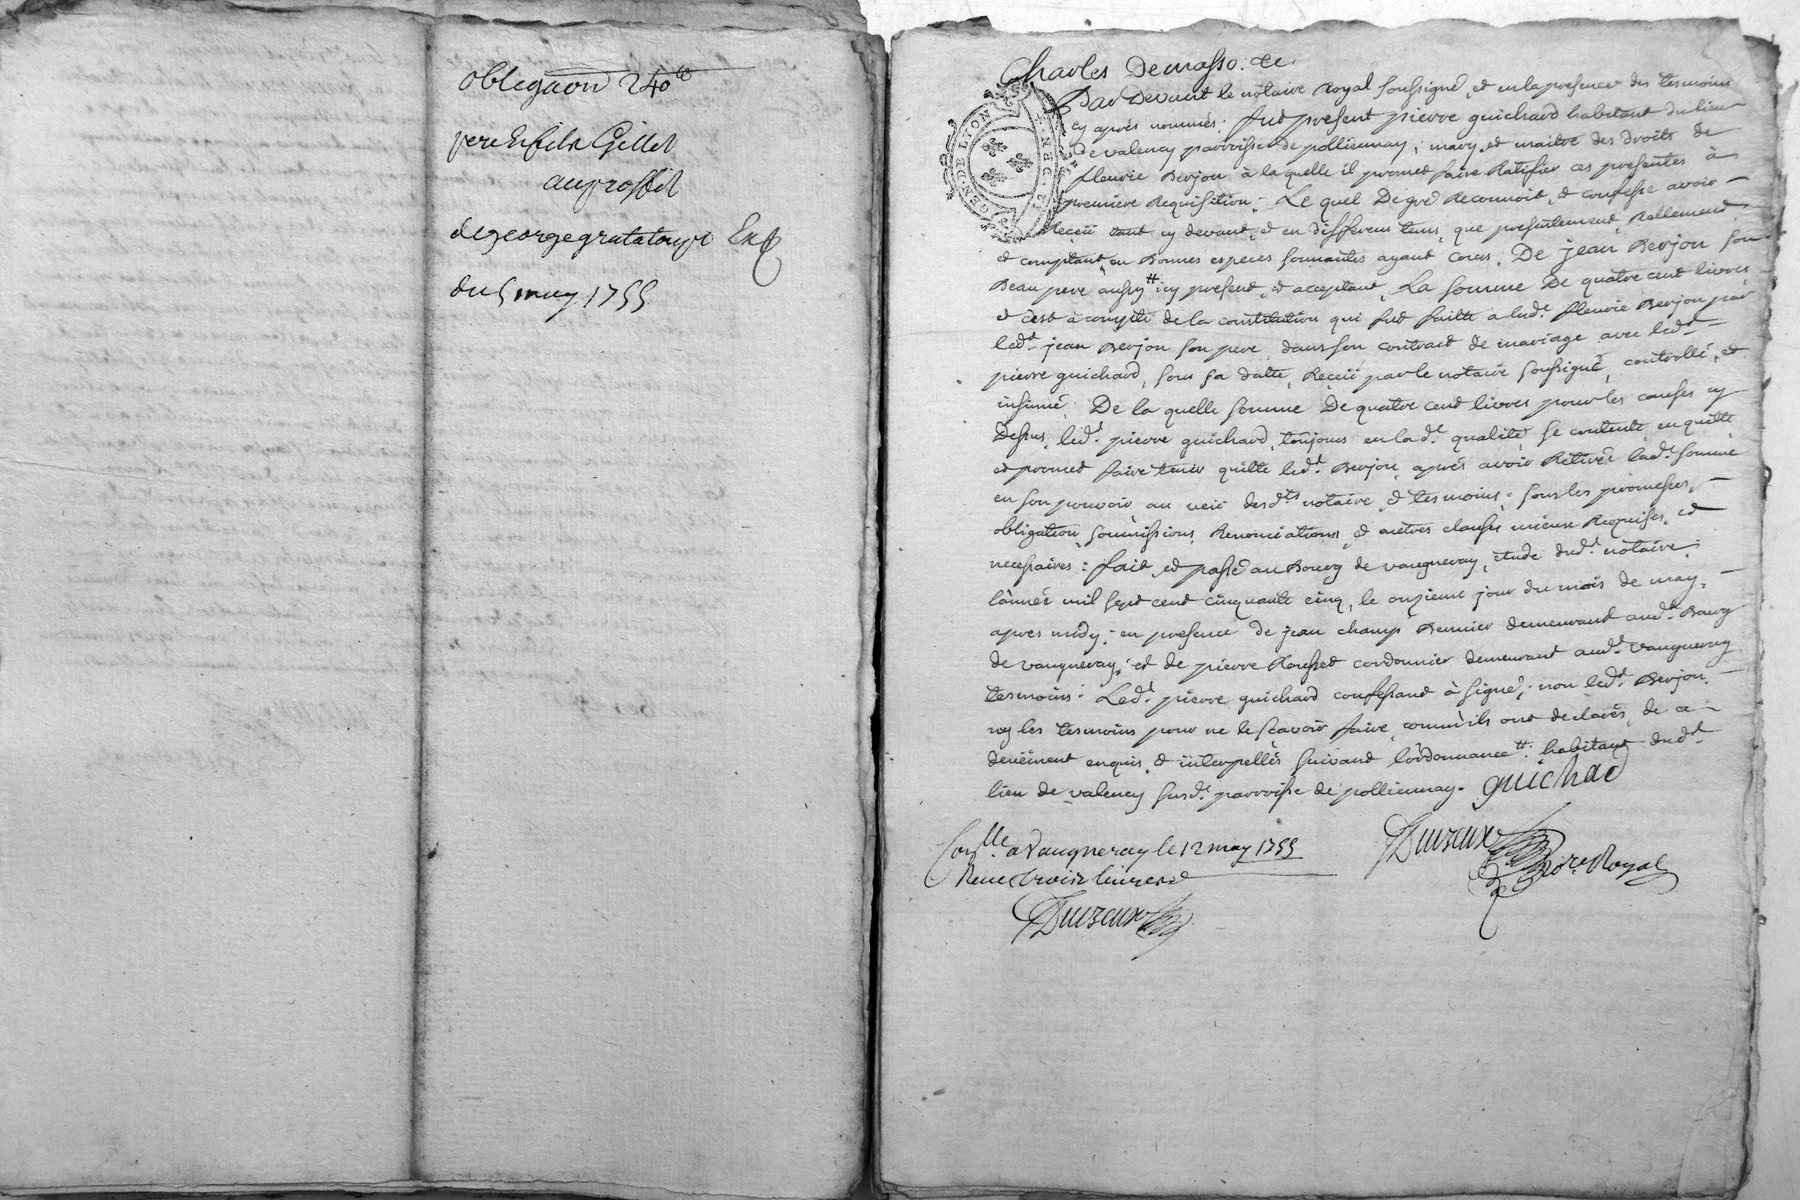 obligaon 240ᵗᵗ
pere et fils Gillet
au proffit
de george grataloup Ext
du 5 may 1755
Charles Demasso. &c.
GEN·DE LION
Par Devant le notaire royal soussigné, et en la presence des tesmoins
cy aprés nommés: fut present pierre guichard habitant du lieu
de valency parroisse de pollieunay, mary et maitre des droits de
fleurie Berjon à la quelle il promet faire Ratifier ces presentes à
premiere Requisition; Le quel De gré Reconnoit, et confesse avoir
Reçeü tant cy devant, et en differens tems, que presentement Rellement
et comptant en Bonnes especes sonnantes ayant cours, De jean Berjon son
Beau pere aussy # icy present, et acceptant, La somme De quatre cent livres
et c'est à compte de la constitution qui fut faitte a lad.ᵉ fleurie Berjon par
led.ᵗ jean Berjon son pere, dans son contract de mariage avec led.ᵗ
pierre guichard, sous sa datte, Reçeü par le notaire soussigné, controllé, et
insinué; De la quelle somme De quatre cent livres pour les causes cy
Dessus, led.ᵗ pierre guichard, toujours en lad.ᵉ qualité se contente, en quitte
et promet faire tenir quitte led.ᵗ Berjon, aprés avoir Retiré lad.ᵉ somme
en son pouvoir au veü desd.ᵗˢ notaire, et tesmoins; sous les promesses,
obligation, soûmissions, Renonciations, et autres clauses mieux Requises, et
necessaires: fait, et passé au Bourg de vaugneray, étude dud.ᵗ notaire;
l'année mil sept cent cinquante cinq, le onzieme jour du mois de may,
apres midy; en presence de jean champ Bennier demeurant aud.ᵗ Bourg
de vaugneray; et de pierre Rousset cordonnier demeurant aud.ᵗ vaugneray
tesmoins; Led.ᵗ pierre guichard confessant à signé; non led.ᵗ Berjon,
ny les tesmoins pour ne le sçavoir faire, comm'ils ont declarés, de ce
deüement enquis, et interpellés suivant l'ordonnance # habitant dud.ᵗ
lieu de valency susd.ᵉ parroisse de pollieunay. guichad
Con.ˡˡᵉ a Vaugneray le 12 may 1755
Reçu trois livres